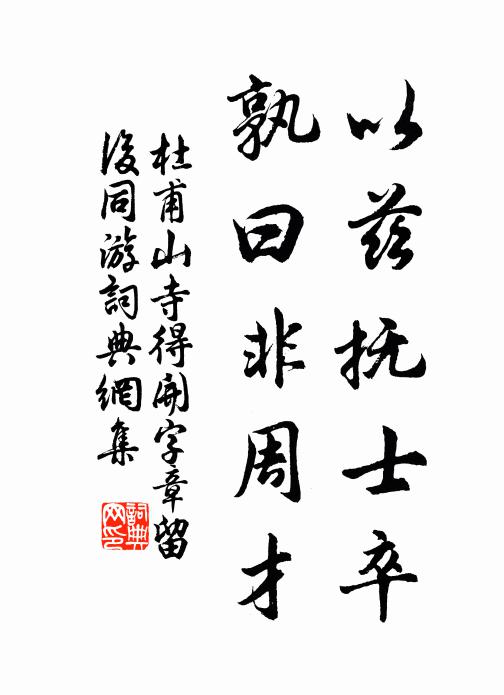 以兹抚士卒
孰曰非周才
杜甫山寺得開字章留
後同游詞典網集
詞典
网印